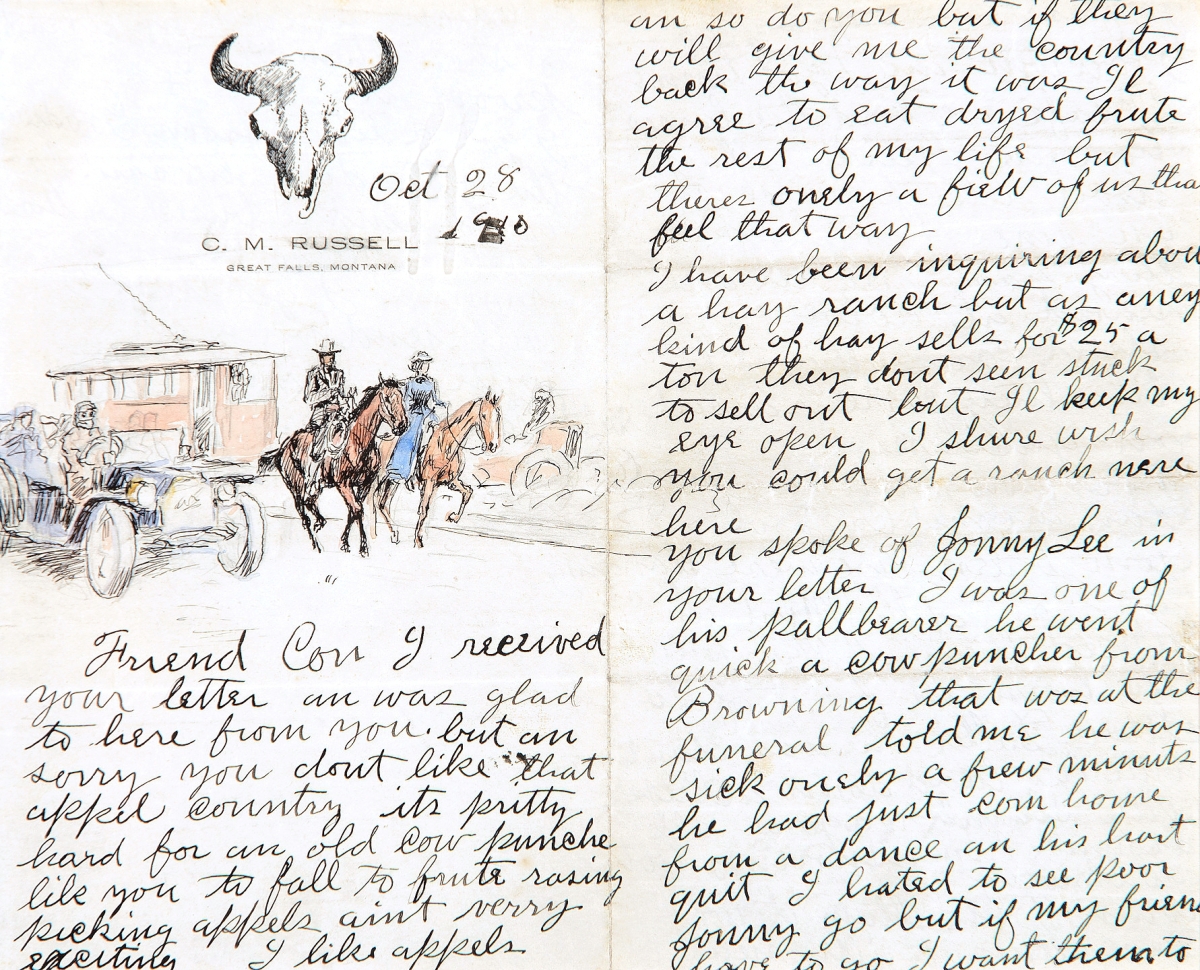 Oct 28
1910
C. M. RUSSELL
GREAT FALLS, MONTANA
Friend Con I received
your letter an was glad
to here from you. but an
sorry you dont like that
appel country its pritty
hard for an old cow punche
lik you to fall to frute rasing
picking appels aint verry
exciting I like appels
an so do you but if they
will give me the country
back the way it was Il
agree to eat dryed frute
the rest of my life but
theres onely a fiew of us tha
feel that way
I have been inquiring abou
a hay ranch but as aney
kind of hay sells for $25 a
ton they dont seen stuck
to sell out but Il keek my
eye open I shure wish
you could get a ranch nere
here
you spoke of Jonny Lee in
your letter I was one of
his pallbearer he went
quick a cow puncher from
Browning that was at the
funeral told me he was
sick onely a few minuts
he had just com home
from a dance an his hart
quit I hated to see poor
Jonny go but if my frien
have to go I want them to